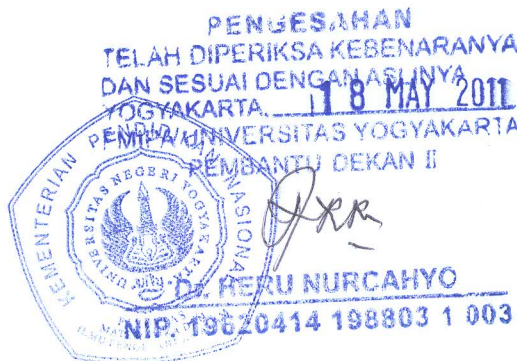 PENGESAHAN
TELAH DIPERIKSA KEBENARANYA
DAN SESUAI DENGAN ASLINYA
YOGYAKARTA, 18 MAY 2011
FMIPA UNIVERSITAS YOGYAKARTA
PEMBANTU DEKAN II
KEMENTERIAN PENDIDIKAN NASIONAL
UNIVERSITAS NEGERI YOGYAKARTA
Dr. HERU NURCAHYO
NIP. 19620414 198803 1 003